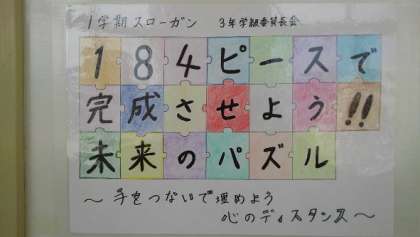 1学期スローガン 3年学期委員長会
184ピースで
完成させよう!!
未来のパズル
～手をつないで埋めよう
心のディスタンス～